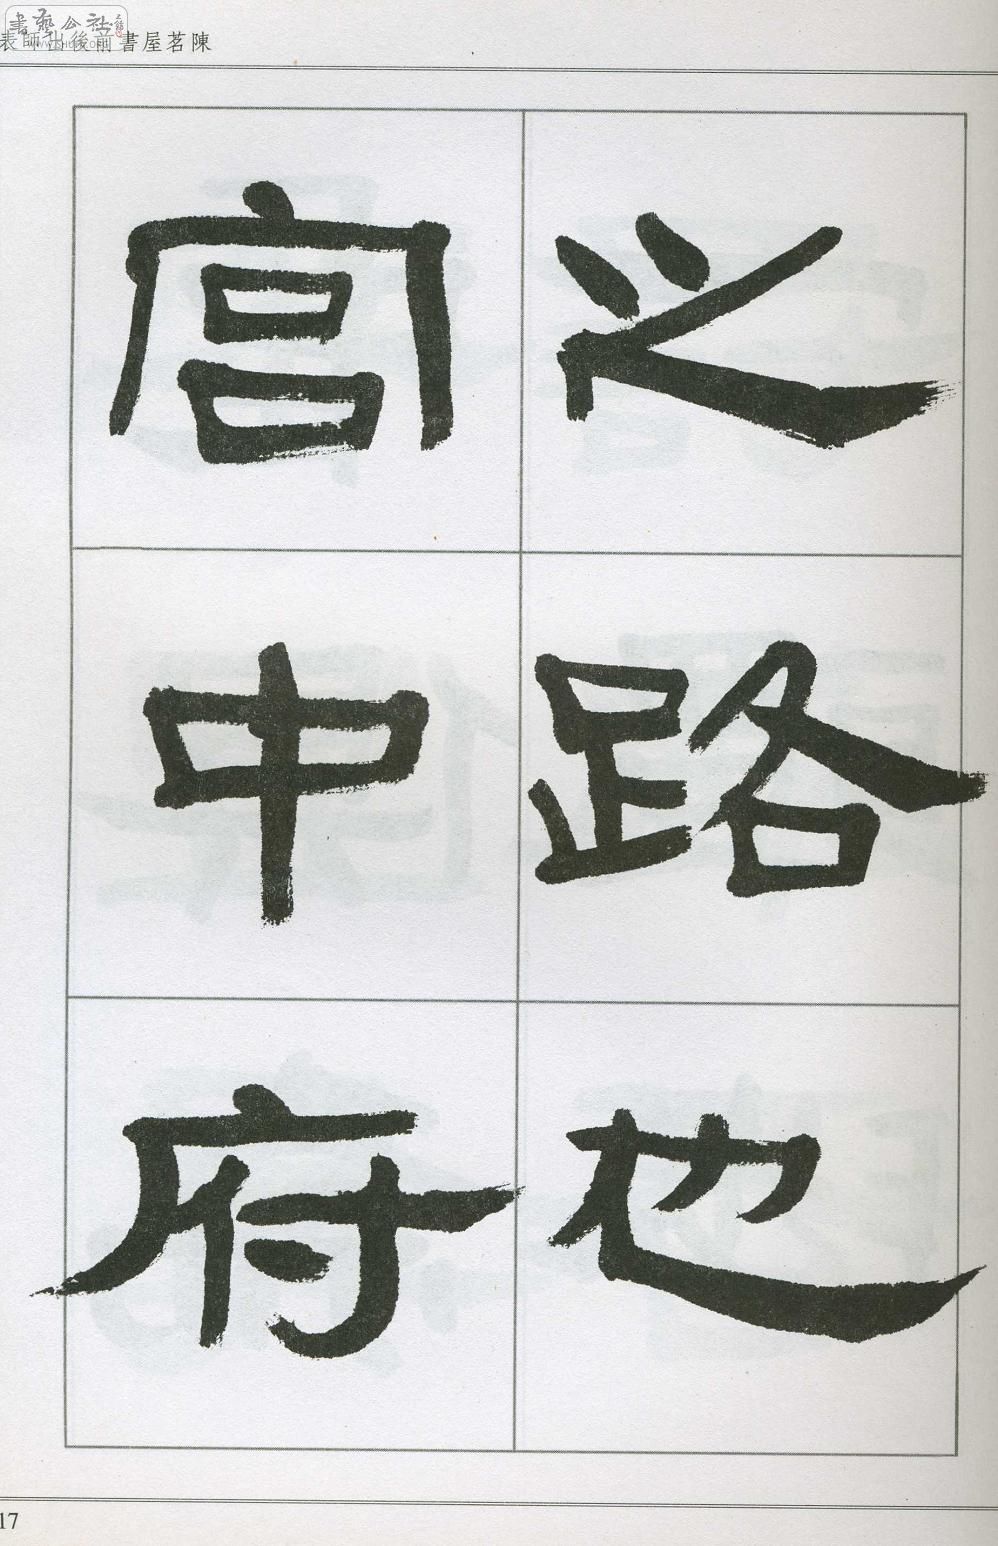 陳茗屋書前後出師表
之路也
宮中府
17